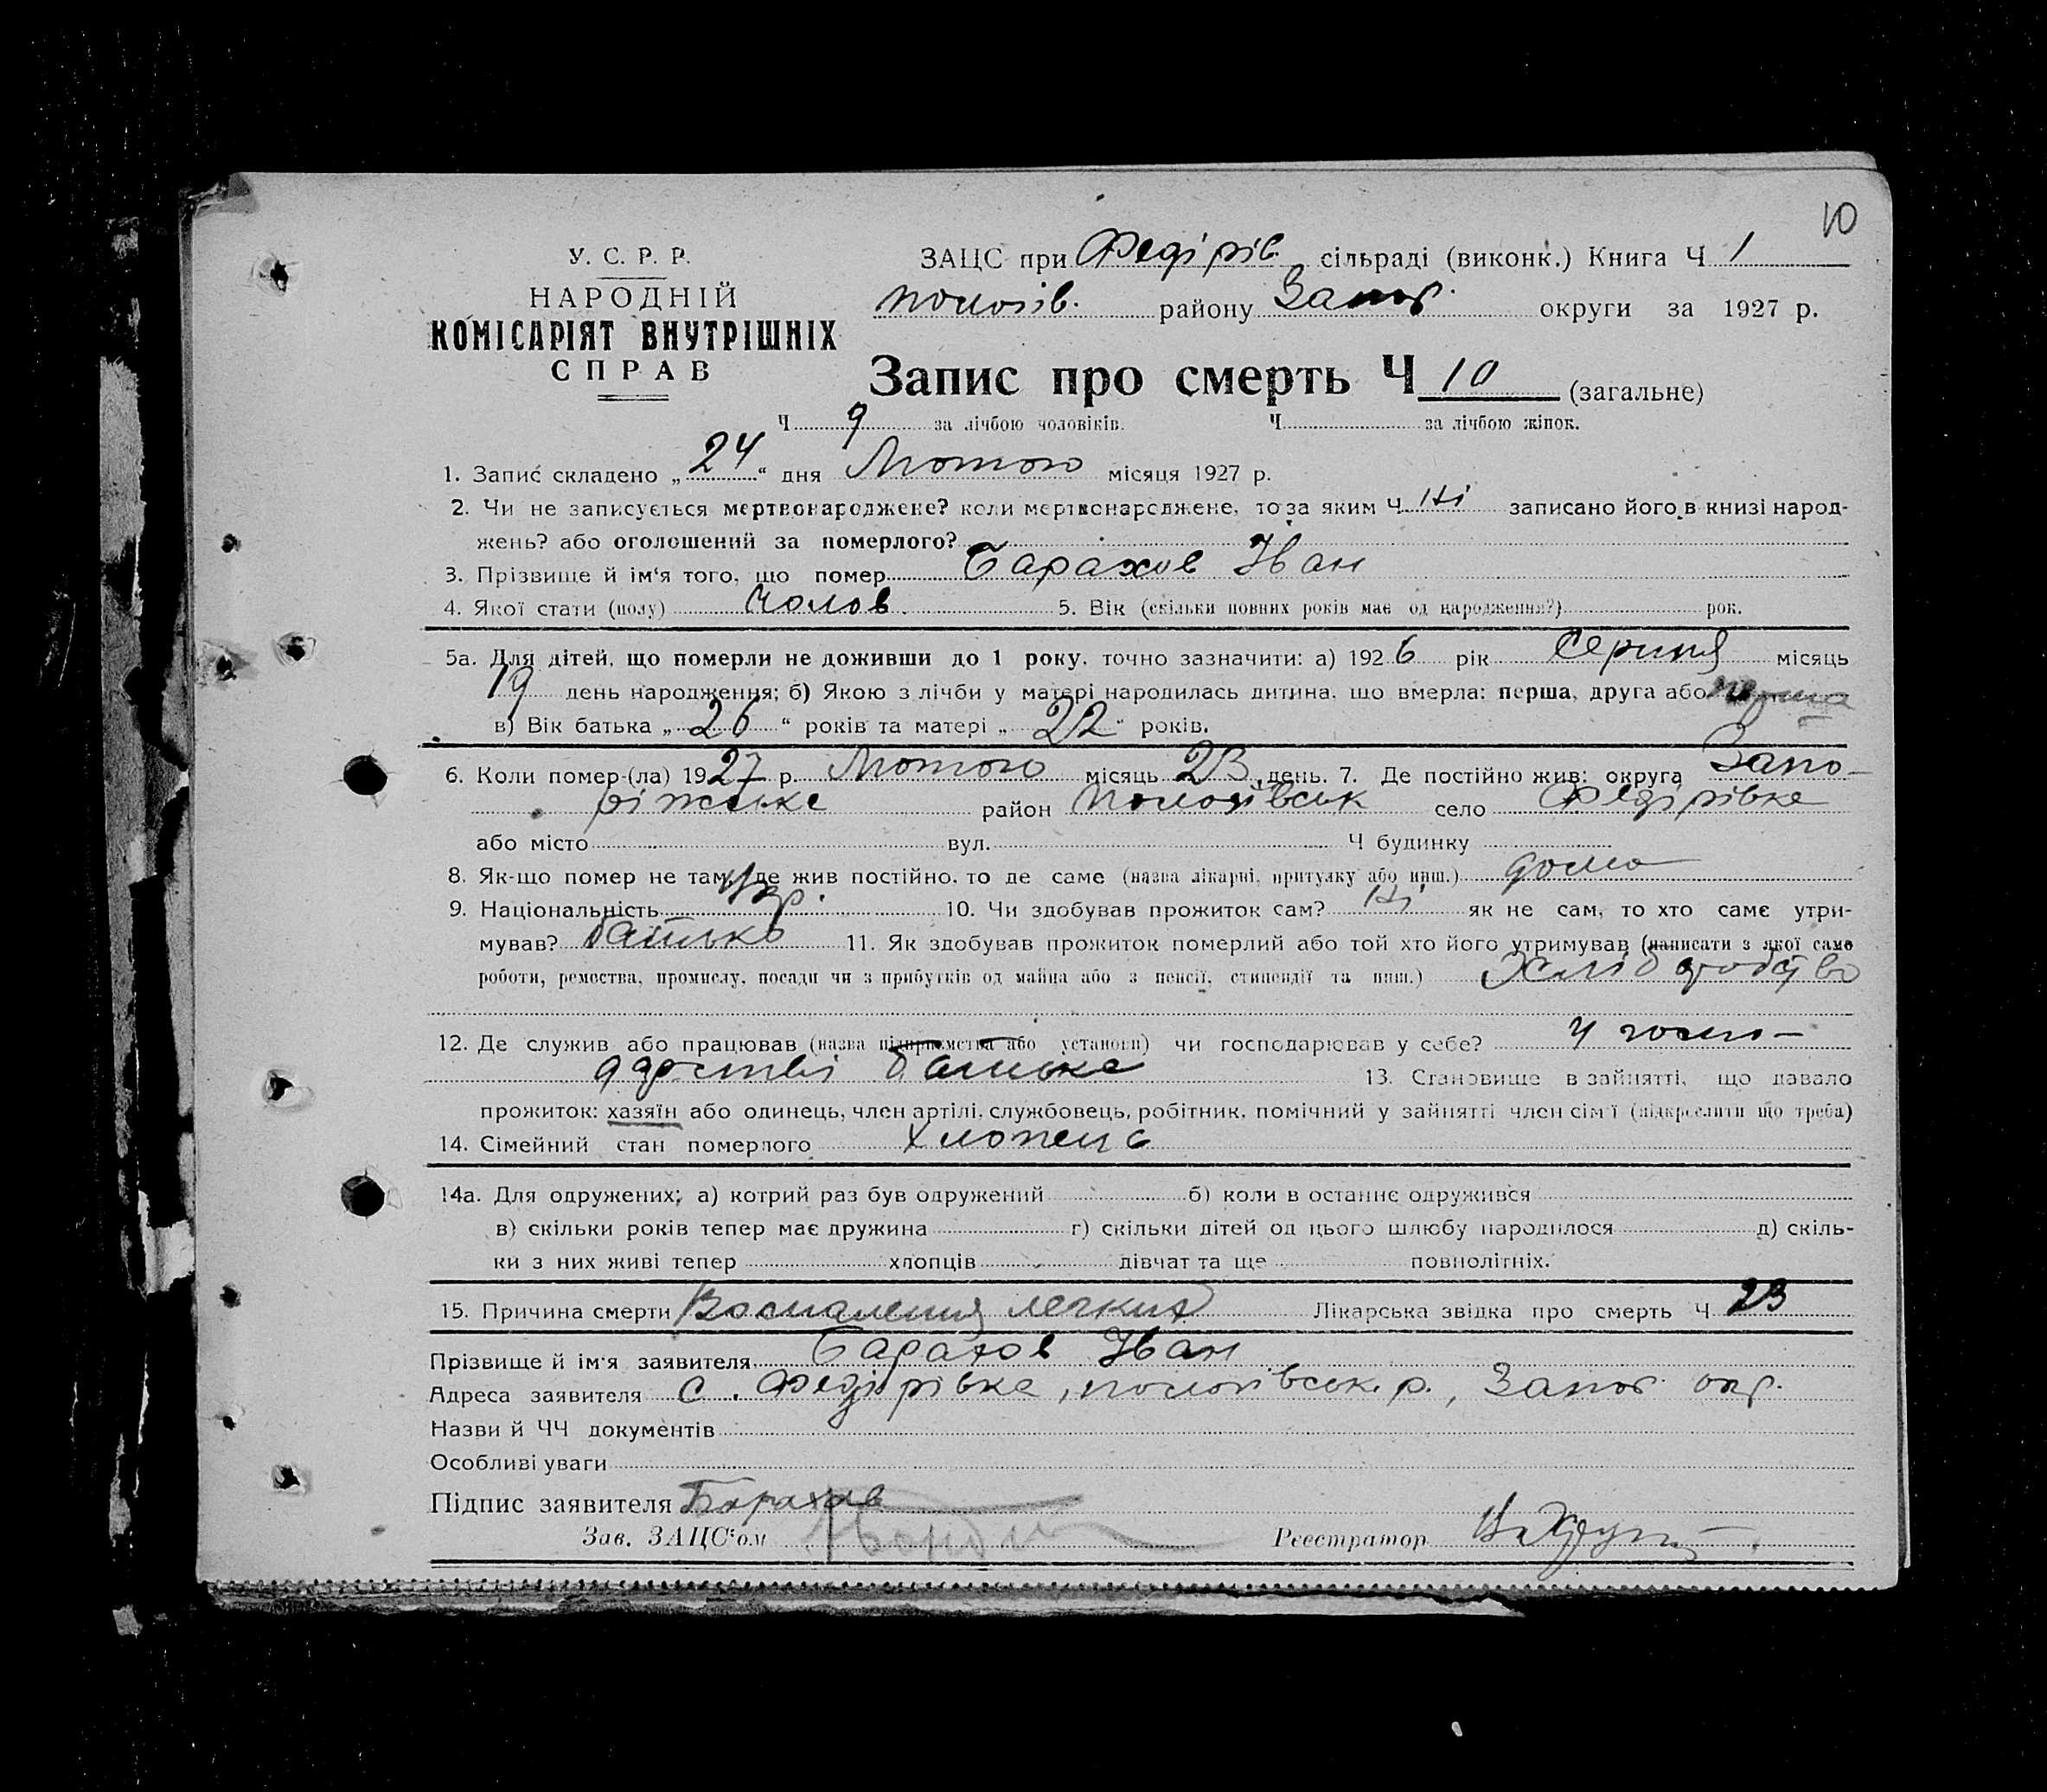 10
У. С. Р. Р.
НАРОДНІЙ
КОМІСАРІЯТ ВНУТРІШНІХ
СПРАВ
ЗАЦС при Федірів. сільраді (виконк.) Книга Ч 1
пологів. району Запор. округи за 1927 р.
Запис про смерть Ч 10 (загальне)
Ч 9 за лічбою чоловіків. Ч за лічбою жінок.
1. Запис складено „24“ дня Лютого місяця 1927 р.
2. Чи не записується мертвонароджене? коли мертвонароджене, то за яким Ч Ні записано його в книзі народ-
жень? або оголошений за померлого?
3. Прізвище й ім‘я того, що помер Барахов Іван
4. Якої стати (полу) Чолов. 5. Вік (скільки повних років має од народження?) рок.
5а. Для дітей, що померли не доживши до 1 року, точно зазначити: а) 1926 рік Серпня місяць
19 день народження; б) Якою з лічби у матері народилась дитина, що вмерла: перша, друга або
в) Вік батька „26“ років та матері „22“ років.
6. Коли помер-(ла) 1927 р. Лютого місяць 23 день. 7. Де постійно жив: округа Запо-
ріжське район Пологівськ село Федірівке
або місто вул. Ч будинку
8. Як-що помер не там, де жив постійно, то де саме (назва лікарні, притулку або инш.) дома
9. Національність Укр. 10. Чи здобував прожиток сам? Ні як не сам, то хто саме утри-
мував? батько 11. Як здобував прожиток померлий або той хто його утримував (написати з якої саме
роботи, ремества, промислу, посади чи з прибутків од майна або з пенсії, стипендії та инш.) Хлібородство
12. Де служив або працював (назва підприємства або установи) чи господарював у себе? У госпо-
дарстві батька 13. Становище в зайнятті, що давало
прожиток: хазяїн або одинець, член артілі, службовець, робітник, помічний у зайнятті член сім‘ї (підкреслити що треба)
14. Сімейний стан померлого хлопець
14а. Для одружених; а) котрий раз був одружений б) коли в останнє одружився
в) скільки років тепер має дружина г) скільки дітей од цього шлюбу народилося д) скіль-
ки з них живі тепер хлопців дівчат та ще повнолітніх.
15. Причина смерти Воспаления легких Лікарська звідка про смерть Ч 23
Прізвище й ім‘я заявителя Барахов Іван
Адреса заявителя с. Федірівке, пологівськ. р., Запор. окр.
Назви й ЧЧ документів
Особливі уваги
Підпис заявителя Барахов
Зав. ЗАЦС‘ом Реєстратор